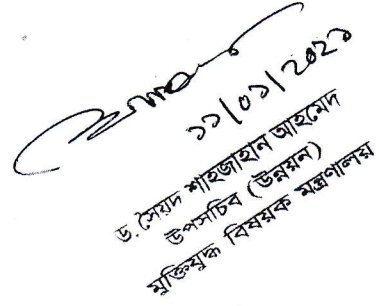 ১১/০১/২০২১
ড. সৈয়দ শাহজাহান আহমেদ
উপসচিব (উন্নয়ন)
মুক্তিযুদ্ধ বিষয়ক মন্ত্রণালয়